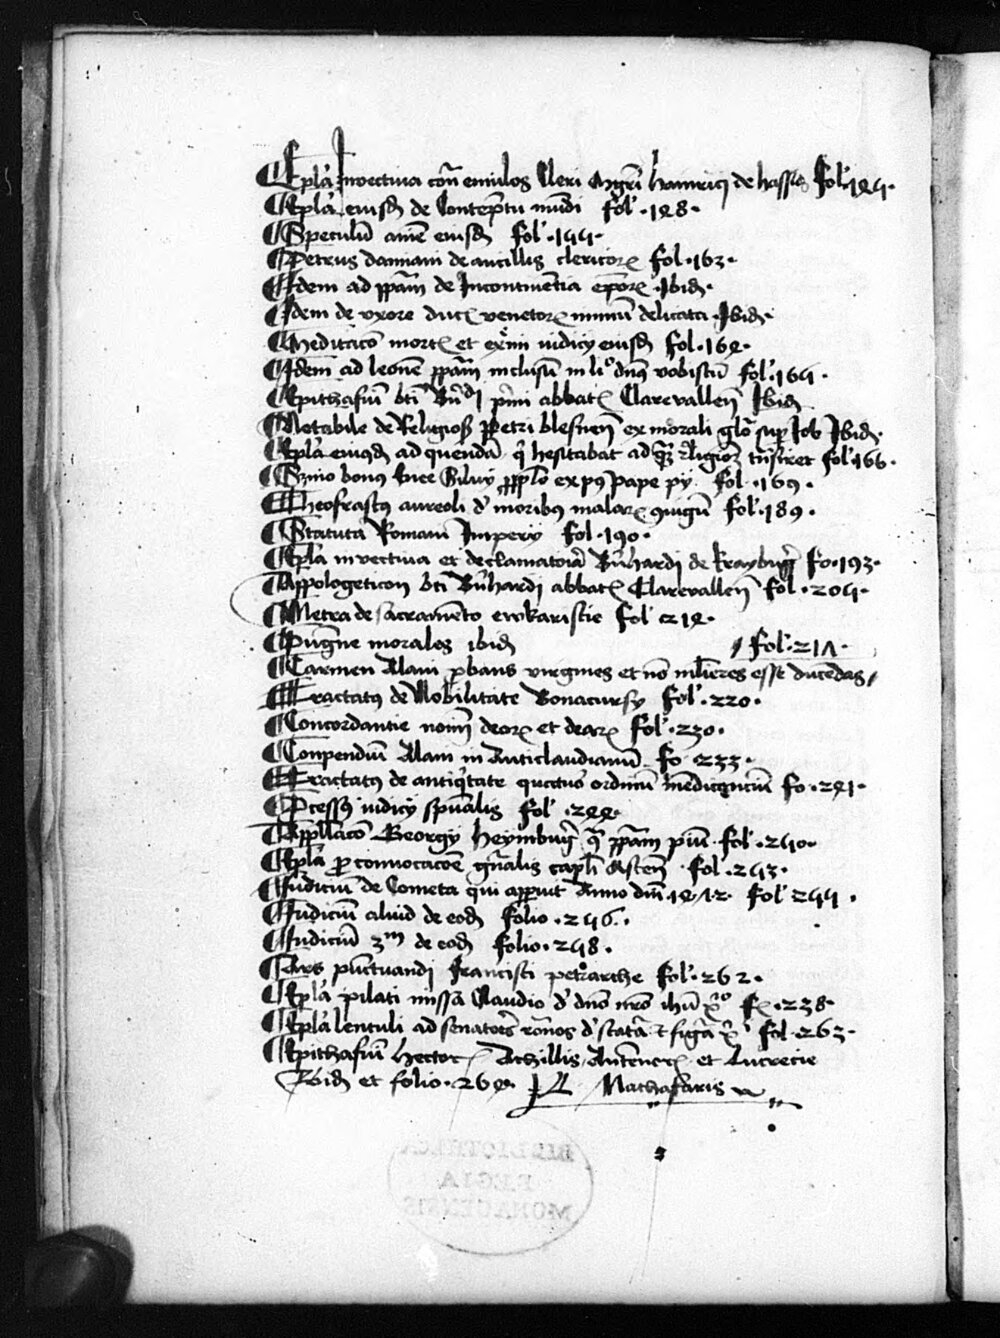 Epl'a Invectiva contra emulos Cleri Mgri Hainrici de hassia Fol. 124.
Epl'a eiusd de Contemptu mundi fol. 128.
Speculum anime eiusd fol. 144.
Petrus damiani de ancillis clericorum fol. 163.
Idem ad papam de Incontinentia eporum Ibid.
Idem de vxore ducis venetorum nimium delicata Ibid.
Meditacio mortis et extremi iudicij eiusd fol. 164.
Idem ad leonem inclusum in lio dnus vobiscum fol. 164.
Epithafium bti Bernhardi primi abbatis Clarevallen Ibid
Notabile de Religiosis Petri blesnen ex morali glo sup Job Ibid.
Epl'a eiusdem ad quendam qui hesitabat ad religionem transiret fol. 166.
Sermo bonus fol. 169.
Theofrastus aureoli de moribus malarum coniugum fol. 189.
Statuta Romani Imperij fol. 190.
Epl'a invectiva et declamatoria Bernhardi de krayburg fo. 193.
Appologeticon bti Bernhardi abbatis Clarevallen fol. 204.
Metra de sacramento ewkaristie fol 214.
Pugne morales ibid
// fol. 217.
Carmen Alani probans virgines et non mulieres esse ducendas //
Tractatus de Nobilitate Bonacursy fol. 220.
Concordantie nominum deorum et dearum fol. 230.
Conpendium Alani in Anticlaudianum fo 233.
Tractatus de antiquitate quatuor ordinum mendicancium fo. 241.
Processus iudicij spiritualis fol. 244.
Appellacio Georgij heymburg contra papam pium fol. 240.
Epl'a pro convocacione generalis capituli fol. 243.
Judicium de Cometa qui apparuit Anno dni 1472 fol 244.
Judicium aliud de eod folio. 246.
Judicium 3m de eod folio. 248.
Ars punctuandi Francisci petrarche fol. 262.
Epl'a pilati missa Claudio de dno nro ihu xo f. 238.
Epl'a lentuli ad senatores romanos de statura et figura xi fol. 263.
Epithafium hectoris Achillis Antenoris et Lucrecie
Ibid et folio. 264.
BIBLIOTHECA
REGIA
MONACENSIS